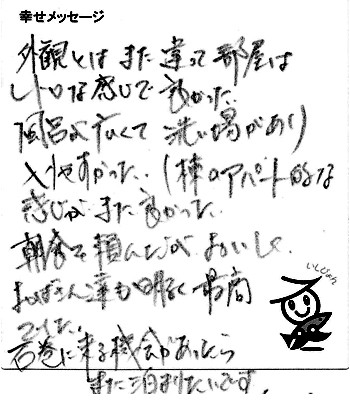 幸せメッセージ
外観とはまた違って部屋は
レトロな感じで良かった。
風呂が広くて洗い場があり
入りやすかった。(棟のアパート的な
感じがまた良かった。
朝食を頼んだがおいしく
おばさん達も明るく最高
でした。
石巻に来る機会があったら
また泊まりたいです